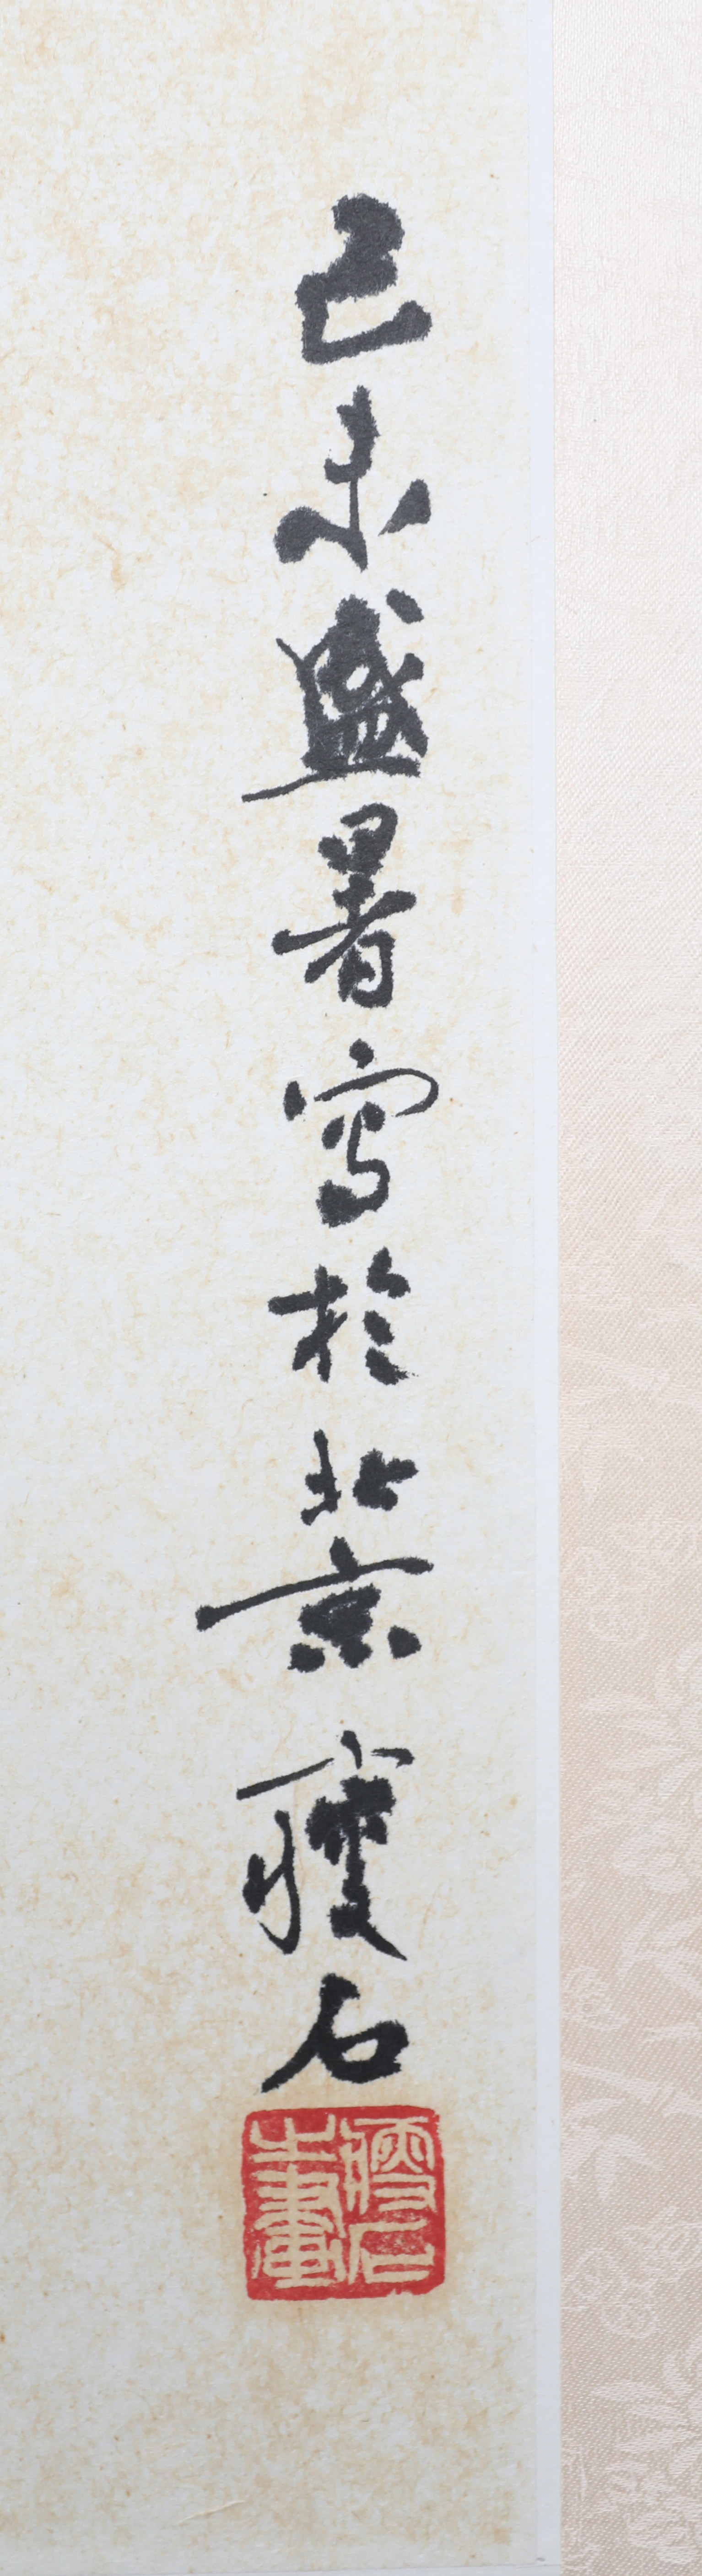 己未盛暑寫於北京 瘦石
瘦石
畫